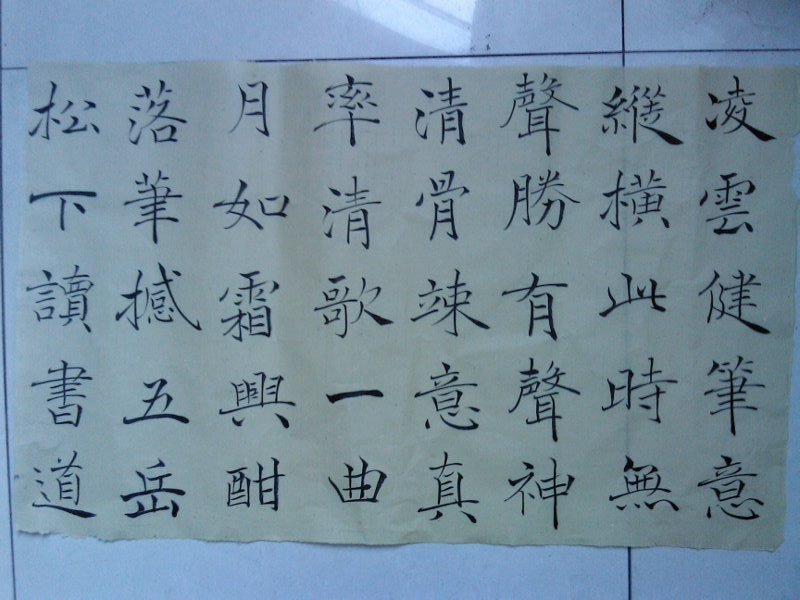 凌雲健筆意
縱橫此時無
聲勝有聲神
清骨竦意真
率清歌一曲
月如霜興酣
落筆撼五岳
松下讀書道